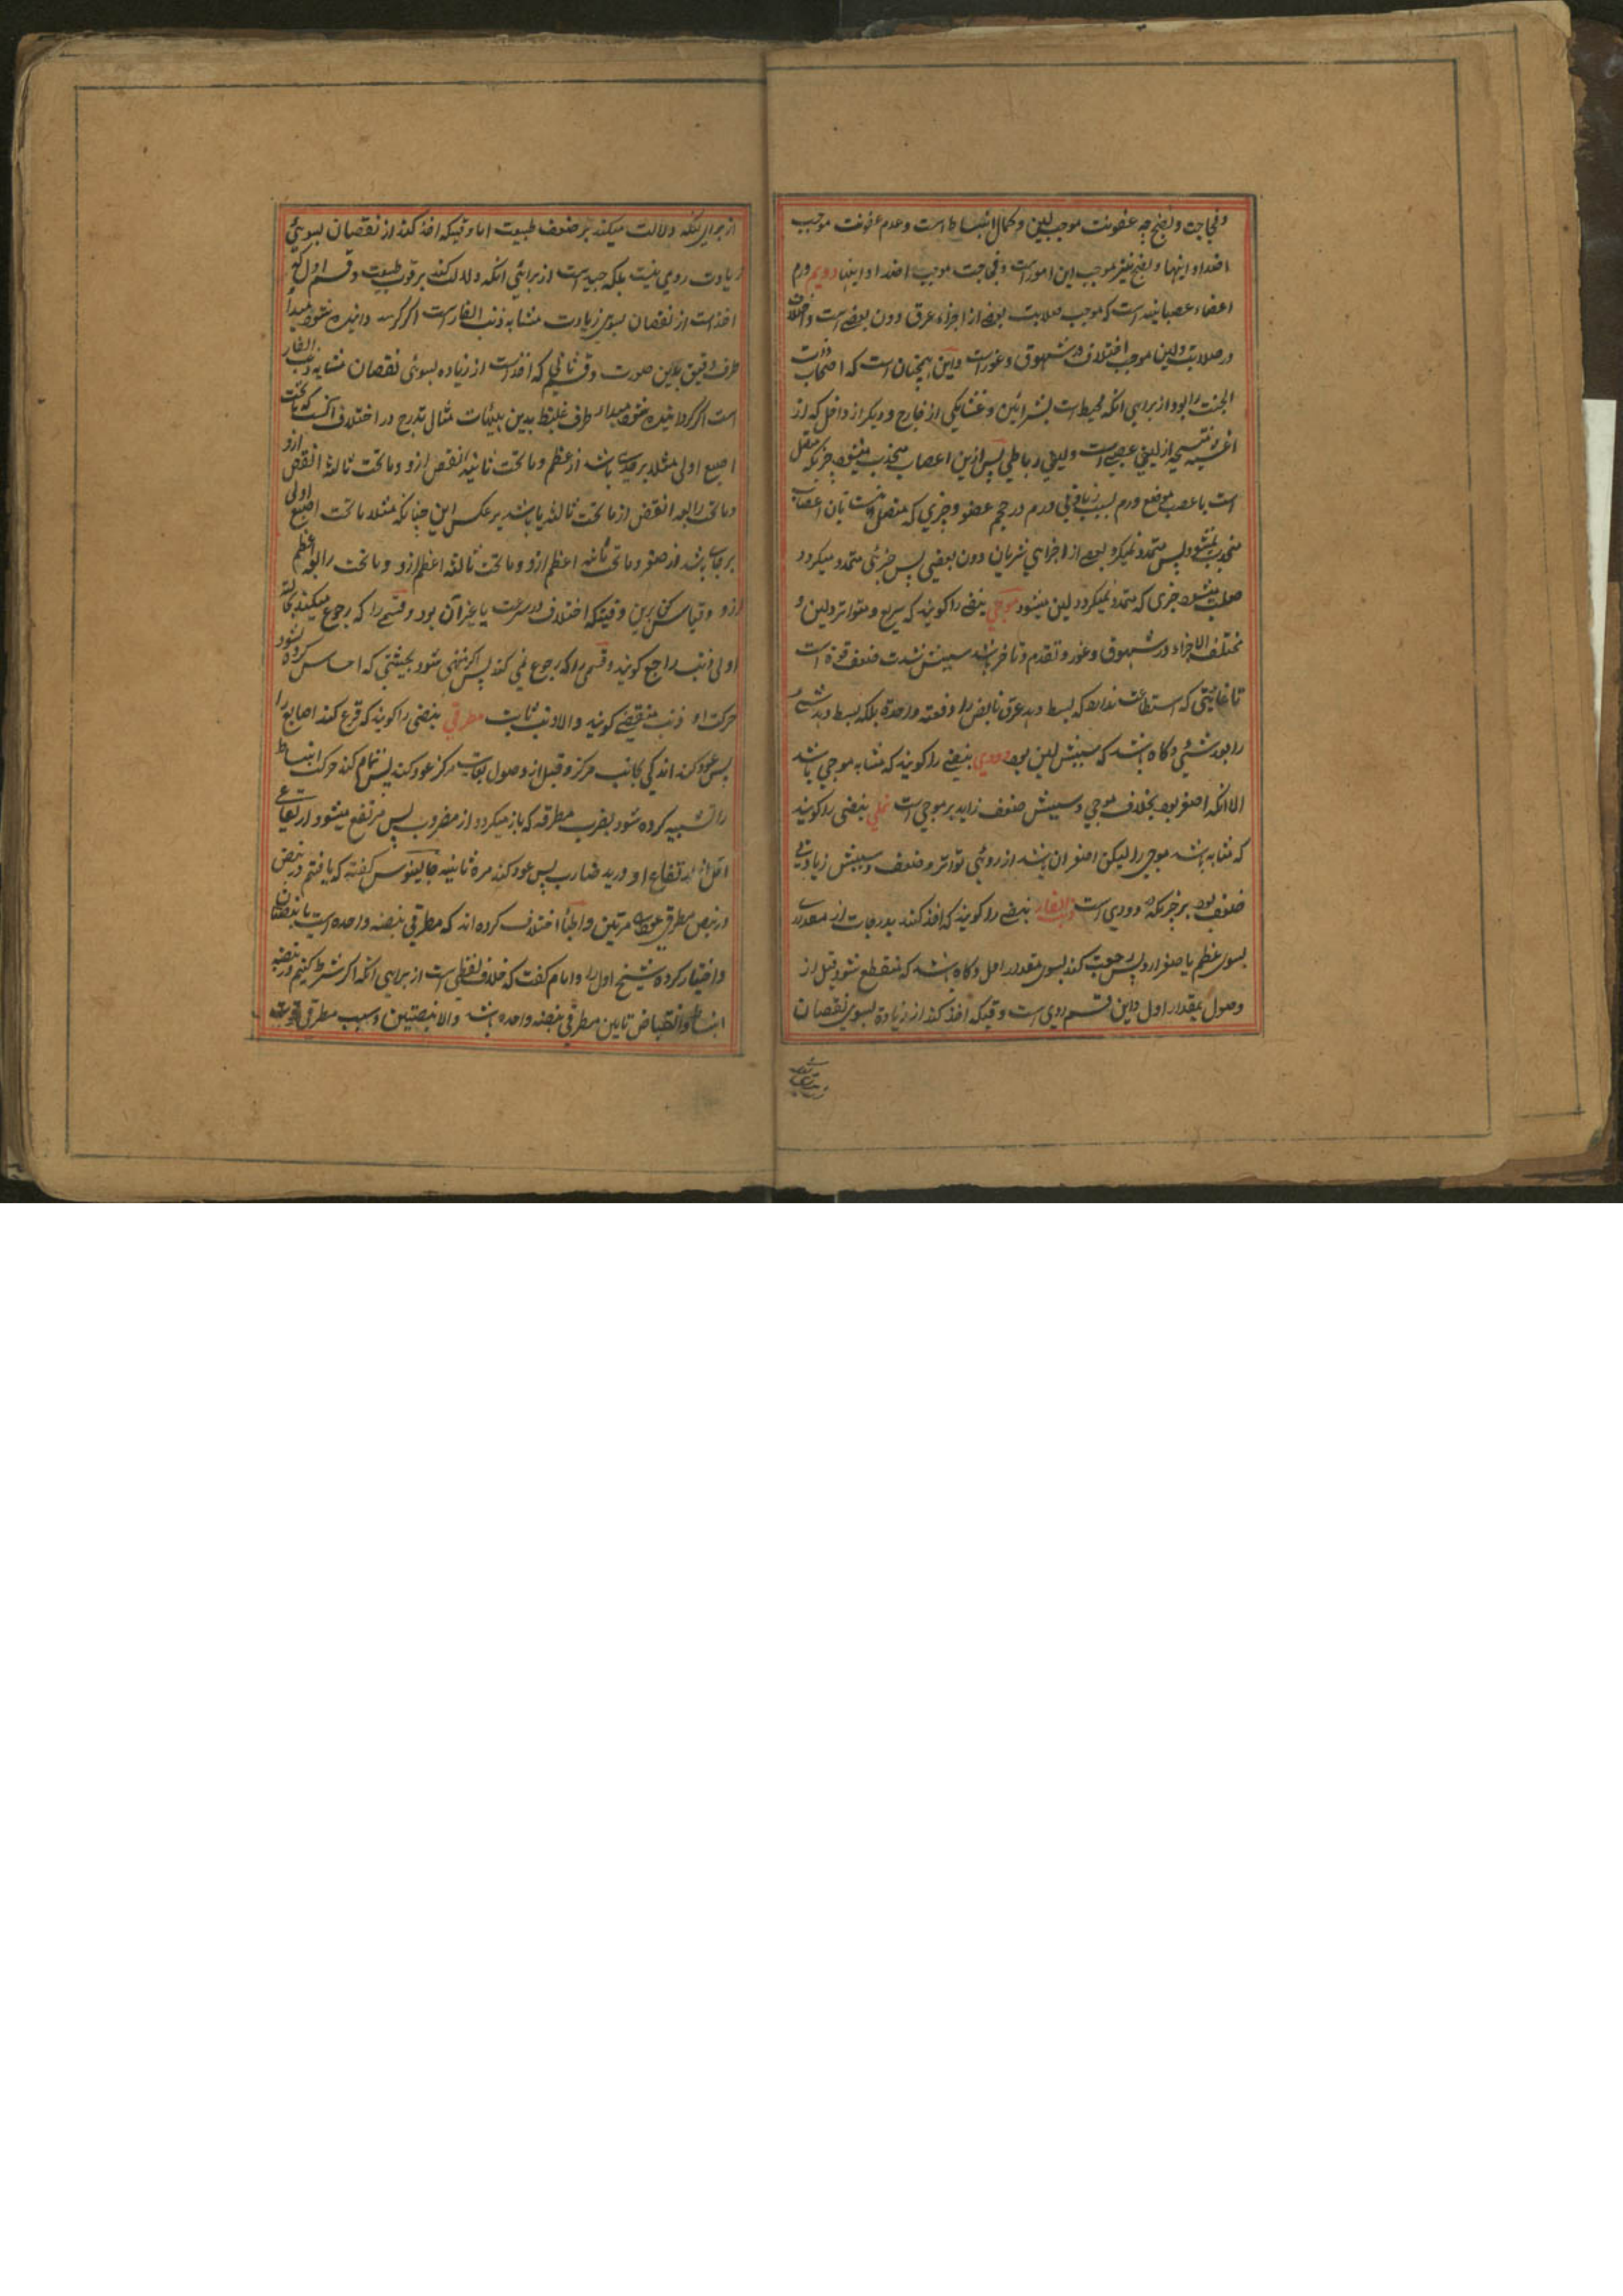 وفجاجت ونضج چه عفونت موجب لین وکمال انبساط است وعدم عفونت موجب
اضداد اینها ونضج نیز موجب این امور است وفجاجت موجب اضداد اینها دویم ورم
اعضاء عصبانیه است که موجب صلابت بعضی از اجزاء عرق دون بعضی است واختلاف
در صلابت ولین موجب اختلاف در شهوق وغور است واین همچنان است که اصحاب ذات
الجنب را بود از برای انکه محیط است بشرائین دو غشا یکی از خارج ودیگر از داخل که از
اغشیه منتسجه از لیفی عصبی است ولیفی رباطی پس ازین اعصاب منجذب میشود جزیکه متصل
است با عصب موضع ورم بسبب زیادتی ورم در حجم عضو وجزی که متصل نیست بآن اعصاب
منجذب نمیشود پس متمدد نمیگردد بعضی از اجزای شریان دون بعضی پس جزئی متمدد میگردد
صلب میشود جزی که متمدد نمیگردد لین میشود موجی نبضی را گویند که سریع ومتواتر ولین و
مختلف الاجزاء در شهوق وغور وتقدم وتاخر باشد سببش شدت ضعف قوة است
تا غایتی که استطاعت ندارد که بسط دهد عرق نابض را دفعته واحدة بلکه بسط دهد شئ
را بعد شئی وگاه باشد که سببش لین بود دودی نبضی را گویند که مشابه موجی باشد
الا انکه اصغر بود بخلاف موجی وسببش ضعف زاید بر موجی است نملی نبضی را گویند
که مشابه باشد موجی را لیکن اصغر ازان باشد از روئی تواتر وضعف وسببش زیادتی
ضعف بود بر جزیکه در دودی است ذنب الفار نبضی را گویند که اخذ کند بدرجات از مقداری
بسوی عظم یا صغر ازو پس رجعت کند بسوی مقدار اول وگاه باشد که منقطع شود قبل از
وصول بمقدار اول واین قسم ردی است وقتیکه اخذ کند از زیادة بسوی نقصان
از برای انکه دلالت میکند بر ضعف طبیعت اما وقتیکه اخذ کند از نقصان بسوئی
زیادت ردی نیست بلکه جید است از برائی انکه دلالت کند بر قوت طبیعت وقسم اول که
اخذ است از نقصان بسوی زیادت مشابه ذنب الفار است اگر گردانیده شود مبدأ
طرف دقیق بدین صورت وقسم ثانی که اخذ است از زیاده بسوئی نقصان مشابه ذنب الفار
است اگر گردانیده شود مبدا طرف غلیظ بدین هیئات مثال تدرج در اختلاف آنست که ماتحت
اصبع اولی مثلا بر قدری باشد از عظم وماتحت ثانیه انقص ازو وماتحت ثالثه انقص ازو
وماتحت رابعه انقص از ماتحت ثالثه یا باشد بر عکس این چنانکه مثلا ماتحت اصبع اولی
بر قدری باشد از صغر وماتحت ثانیه اعظم ازو وماتحت ثالثه اعظم ازو وماتحت رابعه اعظم
ازو وقیاس کن برین وقتیکه اختلاف در سرعت یا غیر آن بود وقسمی را که رجوع میکند بحالة
اولی ذنب راجع گویند وقسمی را که رجوع نمی کند پس اگر منتهی شود بحیثیتی که احساس کرده نشود
حرکت او ذنب منقضی گویند والا ذنب ثابت مطرقی نبضی را گویند که قرع کند اصابع را
پس عود کند اندکی بجانب مرکز وقبل از وصول بغایت مرکز عود کند پس تمام کند حرکت انبساط
را تشبیه کرده شود بضرب مطرقه که باز میگردد از مضروب پس مرتفع میشود ارتفاعی
اقل از ارتفاع او در ید ضارب پس عود کند مرة ثانیه جالینوس گفته که یافتم در نبض
در نبض مطرقی عودات مرتین واطبا اختلاف کرده اند که مطرقی نبضه واحده است یا نبضتان
واختیار کرده شیخ اول را وامام گفت که خلاف لفظی است از برای انکه اگر شرط کنیم در نبضه
انبساط وانقباض تامین مطرقی نبضه واحده باشد والا نبضتین وسبب مطرقی قوت